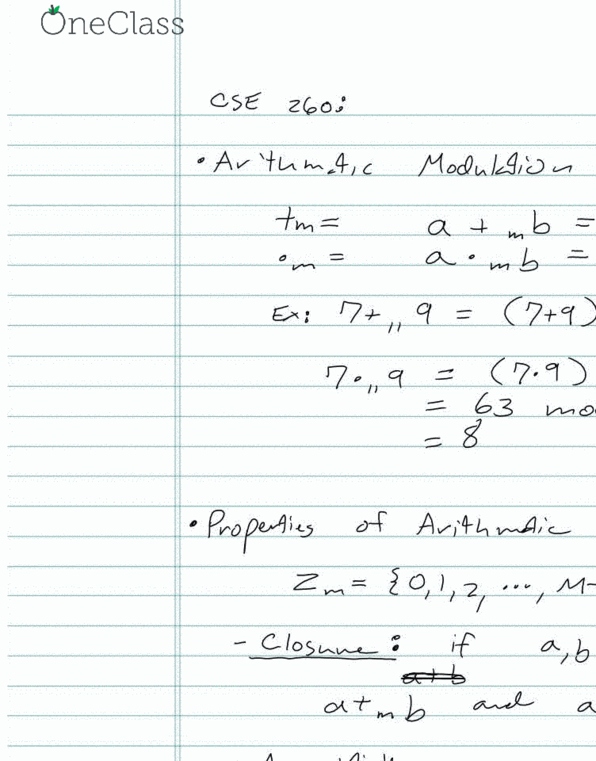 OneClass
CSE 260:
• Arithmatic Modulation
+m = a +m b =
·m = a ·m b =
Ex: 7 +11 9 = (7+9)
7 ·11 9 = (7·9)
= 63 mo
= 8
• Properties of Arithmatic
Zm = {0, 1, 2, ..., M-
- Closure: if a, b
a+b
a +m b and a